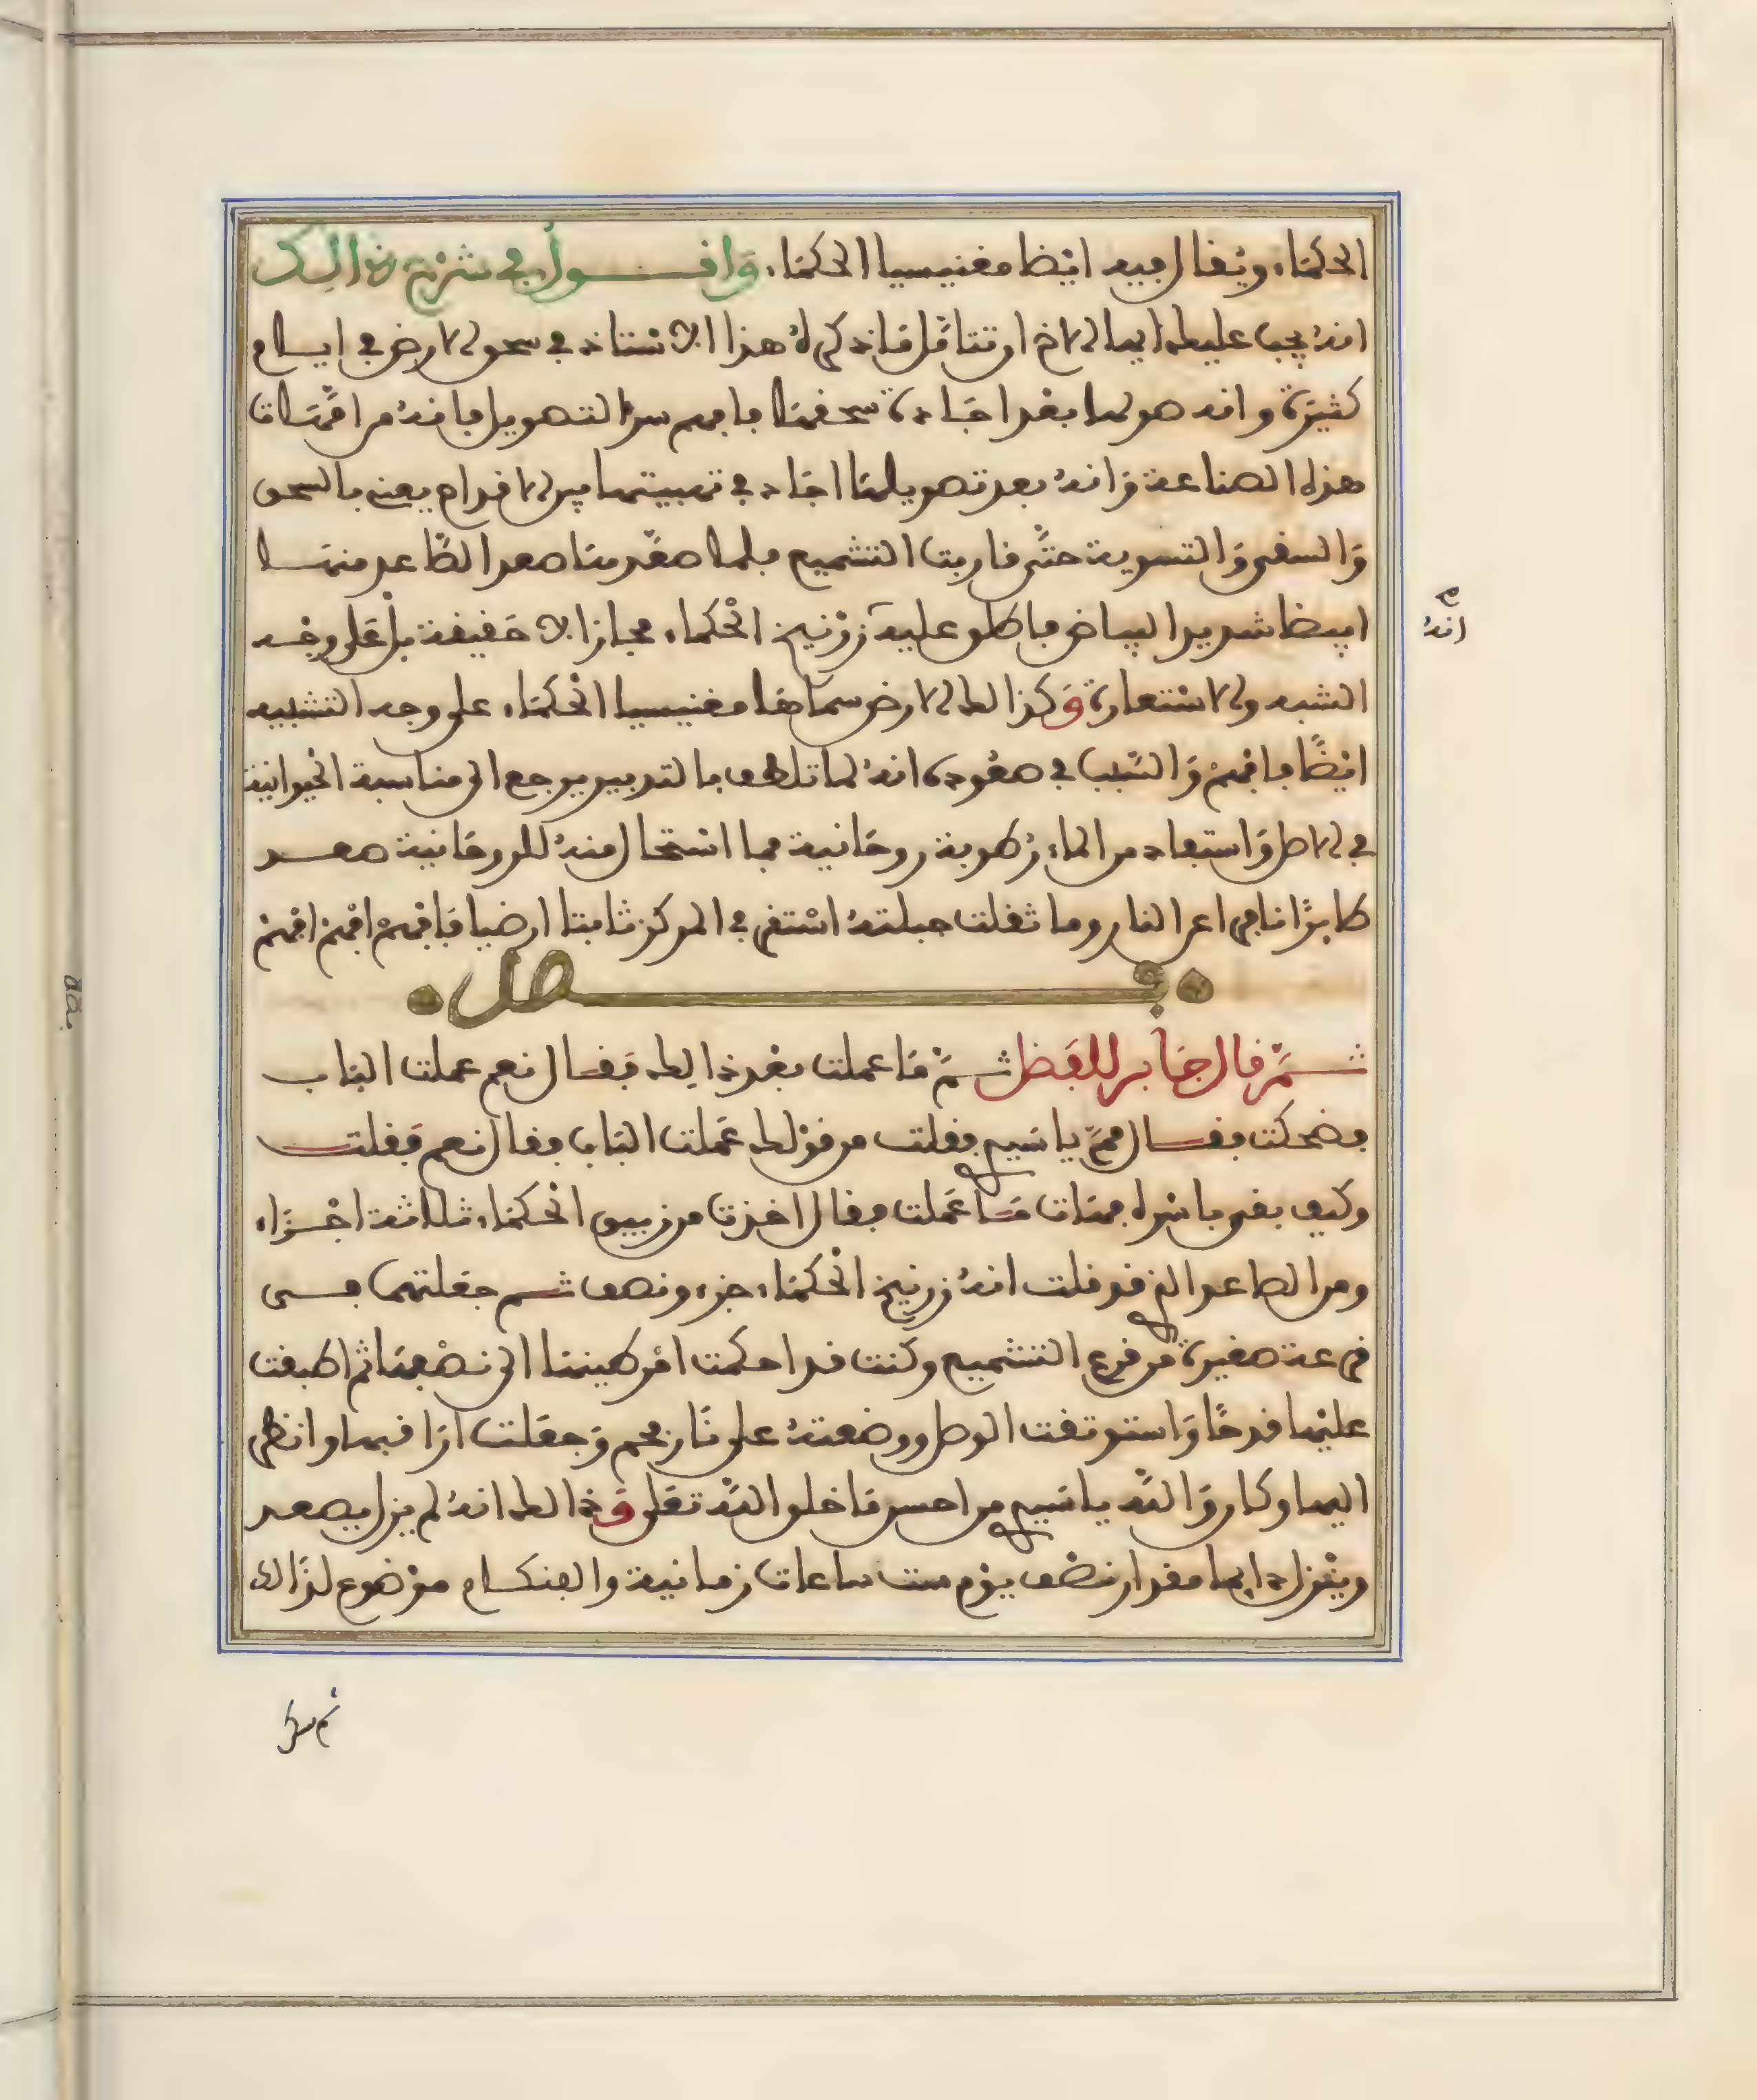 الحكمَاء ويُقال فيه ايْضا مغنيسيا الحكمَاء. وَاقول في شرْح ذالك
انهُ يجب عليك ايها الاخ ان تتاقل مَا ذكرهُ هذا الاستاذ في سحق الارض في ايام
كثيرَة وانه هولها بعْد اجَادة سحقهَا فافهم سر التهويل فانهُ من افَّات
هذه الصناعة وَانهُ بعد تهويلهَا اجَاد في تهبيتها بين الاقدام يعني بالسحق
وَالسقي وَالتسوية حتَّى قاربت التشميع فلما صعَّدهَا صعد الصَّاعد منهَا
ابيضا شديد البياض فاطلق عليه زرْنيخ الْحكماء مجازا لا حقيقة بل عَلى وجْه
الشبه والاسْتعارة وَكذالك الارض سمَاها مغنيسيا الْحكمَاء على وجه التشبيه
ايْضًا فافهمْ وَالسَبب في صعُوده انهُ لما تلطف بالتدبير يرجع الى مناسبة الحْيوانية
في الاصل وَاستفاد من الماء رُطوبة روحَانية فما اسْتحَال منهُ للروحَانية صعد
طايرًا نافرا عن النار وما ثقلت جبلتهُ اسْتقر في المركز ثابتا ارضيا فَافهمْ افْهمْ افْهمْ
فصل
ثمَّ قال جَابر للفَضل ثمَّ مَا عملت بعْد ذالك فقال نعم عملت البَاب
فضحكت فقال ممَّ يا سَيدي فقلت من قوْلك عَملت البَاب فقال نعم فقلت
وكيف بقي باشرك فهَات مَا عَملت فقال اخذت من زيبق الْحكمَاء ثلاثة اجْزَاء
ومن الصاعد الذي قلت انهُ زرنيخ الْحكمَاء جزء ونصف ثم جعَلتهمَا في
قرعة صغيرة من قرع التشميع وكنت قد احكمت امْر طينها الى نصْفهَا ثم اطبقت
عليْها قدحًا وَاستوثقت الوصل ووضعتهُ على نَار فحم وَجعَلت ارَاقبها وانظر
اليها وكان وَاللَّه يا سَيدي من احسن مَا خلق اللَّه تعَلى وَذالك انهُ لم يزل يصعد
وينْزل دايما مقدار نصْف يوْم ست ساعات زمانية والفنكام موْضوع لذَالك
انهُ